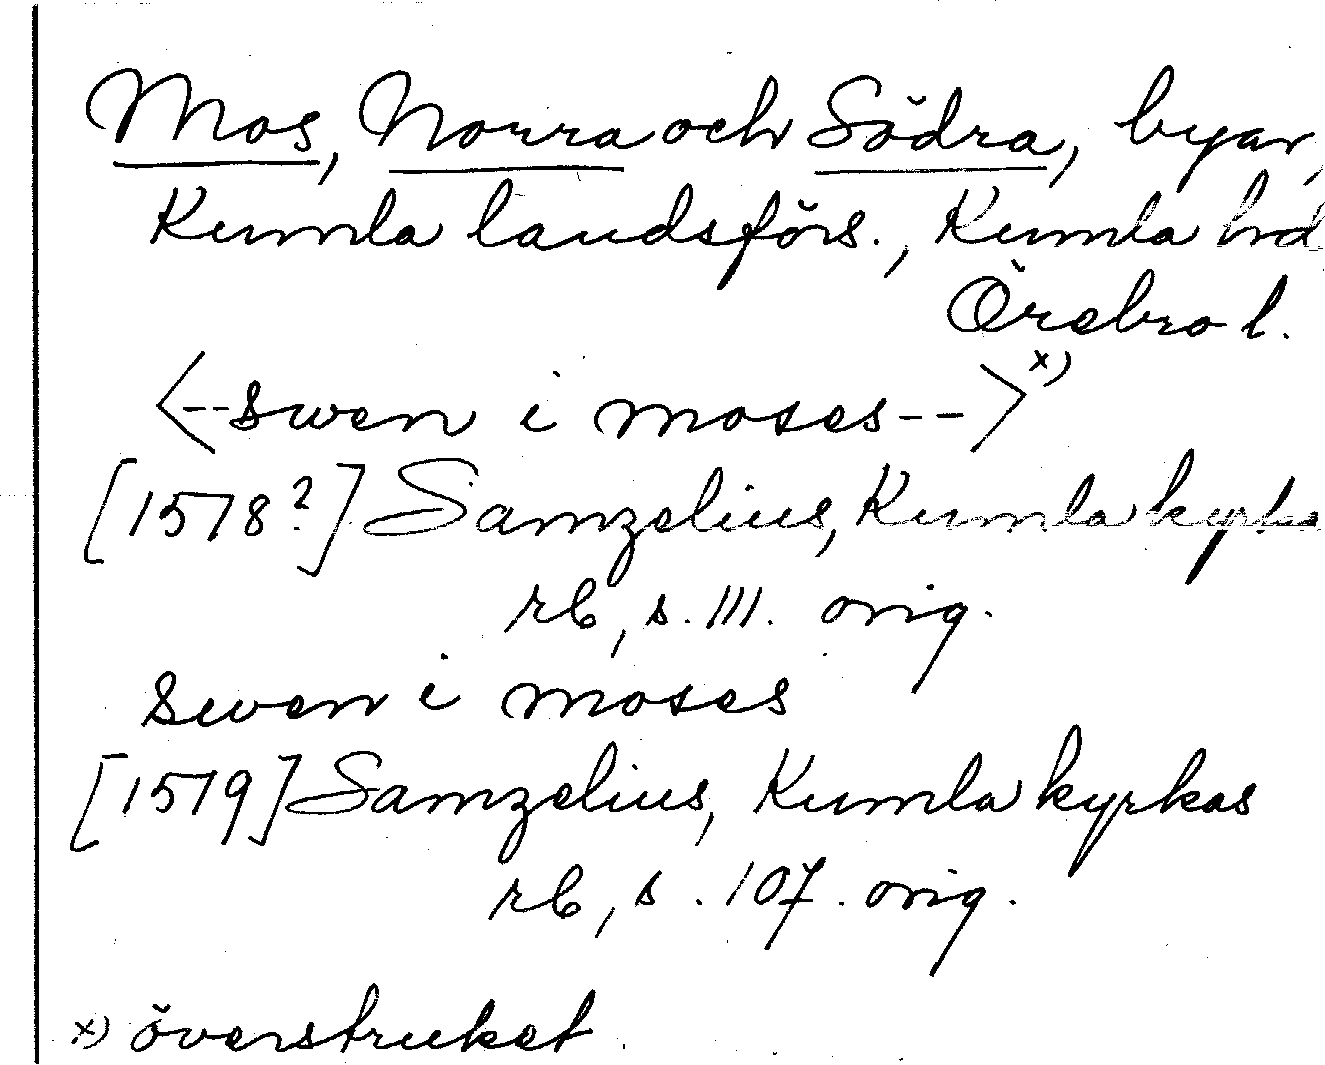 Mos, Norra och Södra, byar,
Kumla landsförs., Kumla hd
Örebro l.
<--swen i moses-->x)
[1578?] Samzelius, Kumla kyrkas
rb, s. 111. orig.
Swen i moses
[1579] Samzelius, Kumla kyrkas
rb, s. 107. orig.
x) överstruket.